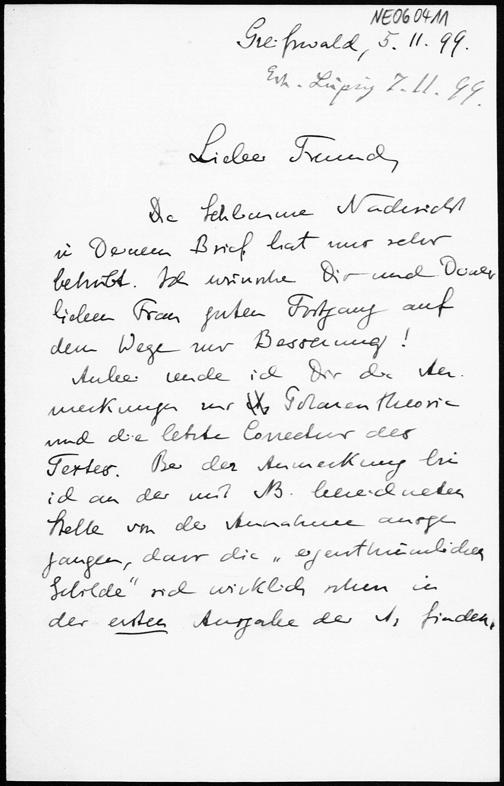 NE060411
Greifswald, 5. 11. 99.
Erh. Leipzig 7. 11. 99.
Lieber Freund,
Die schlimme Nachricht
in Deinem Brief hat mich sehr
betrübt. Ich wünsche Dir und Deiner
lieben Frau guten Fortgang auf
dem Wege zur Besserung!
Anbei sende ich Dir die An-
merkungen zur Polarentheorie
und die letzte Correctur des
Textes. Bei der Anmerkung bin
ich an der mit NB. bezeichneten
Stelle von der Annahme ausge
gangen, dass die „eigenthümlichen
Gebilde" sich wirklich schon in
der ersten Ausgabe der A, finden,